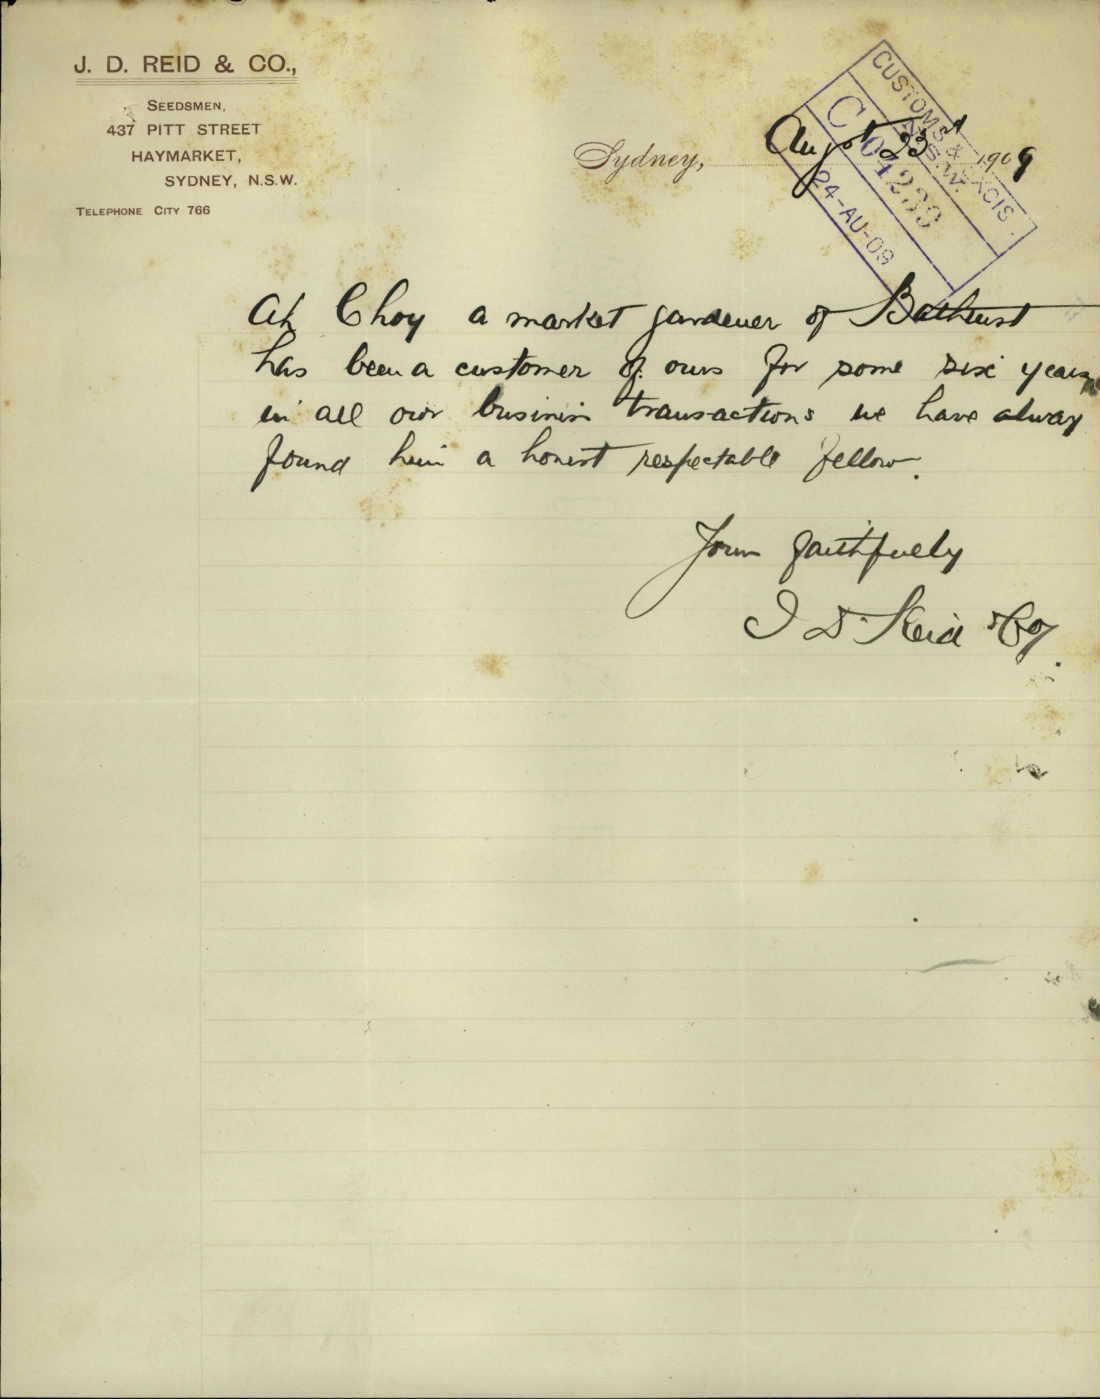 J. D. REID & CO.,
SEEDSMEN,
437 PITT STREET
HAYMARKET,
SYDNEY, N.S.W.
TELEPHONE CITY 766
Sydney, Augst 23rd 1909
CUSTOMS & EXCIS
N.S.W.
C 04239
24-AU-09
Ah Choy a market gardener of Bathurst
has been a customer of ours for some six years
in all our business transactions we have alway
found him a honest respectable fellow.
Yours faithfully
J D Reid & Coy.